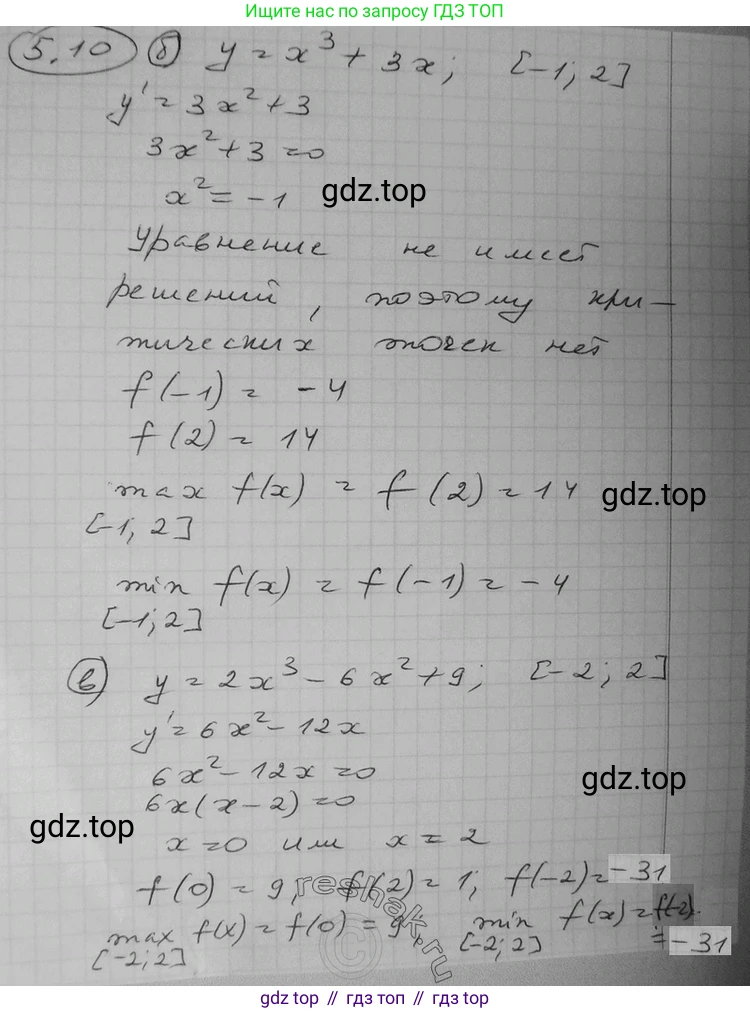 Ищите нас по запросу ГДЗ ТОП
5.10 б) y = x³ + 3x; [-1; 2]
y' = 3x² + 3
3x² + 3 = 0
x² = -1
gdz.top
Уравнение не имеет
решений, поэтому кри-
тических точек нет
f(-1) = -4
f(2) = 14
max f(x) = f(2) = 14
gdz.top
[-1; 2]
min f(x) = f(-1) = -4
[-1; 2]
в) y = 2x³ - 6x² + 9; [-2; 2]
y' = 6x² - 12x
6x² - 12x = 0
gdz.top
6x(x - 2) = 0
gdz.top
x = 0 или x = 2
f(0) = 9, f(2) = 1; f(-2) = -31
reshak.ru
max f(x) = f(0) = 9; min f(x) = f(-2) =
[-2; 2] [-2; 2] = -31
gdz.top // гдз топ // gdz.top